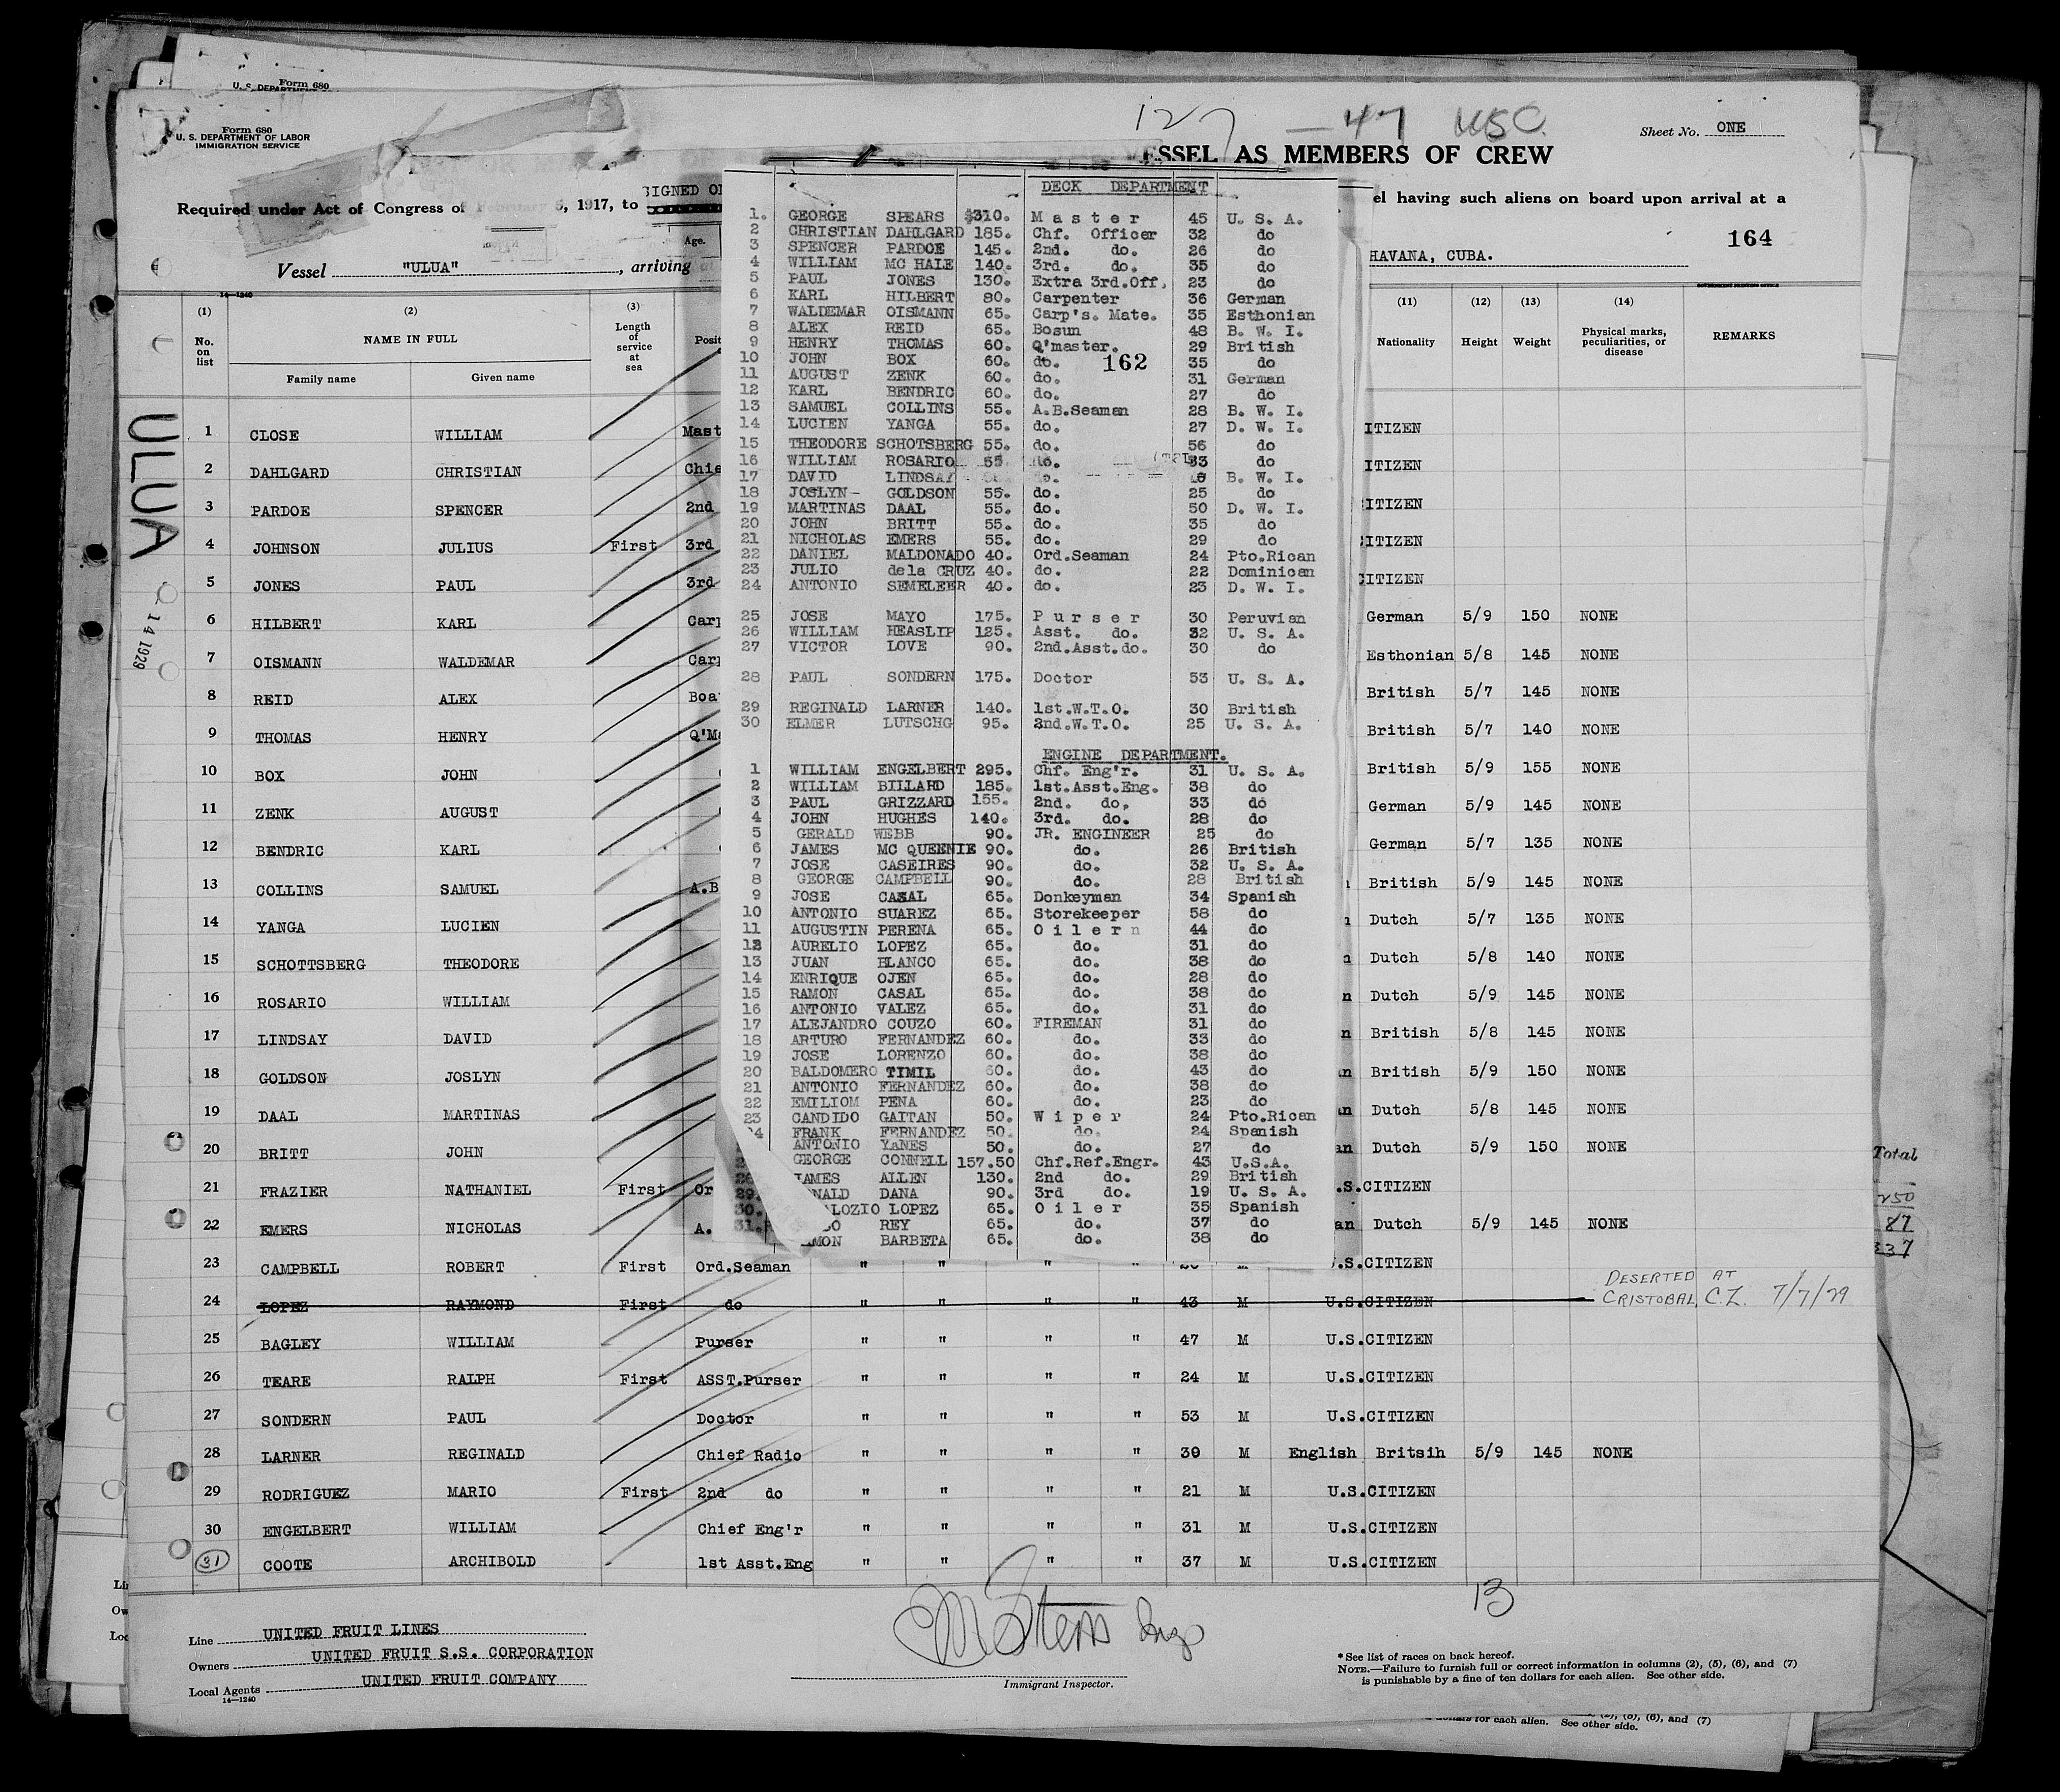 Form 680
U. S. DEPARTMENT
Form 680
U. S. DEPARTMENT OF LABOR
IMMIGRATION SERVICE
127 — 47 USC.
Sheet No. ONE
ESSEL AS MEMBERS OF CREW
Required under Act of Congress of February 5, 1917, to
SIGNED O
el having such aliens on board upon arrival at a
164
Vessel "ULUA", arriving
Age.
HAVANA, CUBA.
14—1240
(1) (2) (3) (11) (12) (13) (14)
No. on list
NAME IN FULL
Family name Given name
Length of service at sea
Posit
Nationality Height Weight Physical marks, peculiarities, or disease REMARKS
ULUA
14 1929
DECK DEPARTMENT
1. GEORGE SPEARS $310. Master 45 U. S. A.
2 CHRISTIAN DAHLGARD 185. Chf. Officer 32 do
3 SPENCER PARDOE 145. 2nd. do. 26 do
4 WILLIAM MC HALE 140. 3rd. do. 35 do
5 PAUL JONES 130. Extra 3rd.Off. 23 do
6 KARL HILBERT 80. Carpenter 36 German
7 WALDEMAR OISMANN 65. Carp's. Mate. 35 Esthonian
8 ALEX REID 65. Bosun 48 B. W. I.
9 HENRY THOMAS 60. Q'master. 29 British
10 JOHN BOX 60. do. 162 35 do
11 AUGUST ZENK 60. do. 31 German
12 KARL BENDRIC 60. do. 27 do
13 SAMUEL COLLINS 55. A.B.Seaman 28 B. W. I.
14 LUCIEN YANGA 55. do. 27 D. W. I.
15 THEODORE SCHOTSBERG 55. do. 56 do
16 WILLIAM ROSARIO 55 do. 33 do
17 DAVID LINDSAY do. B. W. I.
18 JOSLYN- GOLDSON 55. do. 25 do
19 MARTINAS DAAL 55. do. 50 D. W. I.
20 JOHN BRITT 55. do. 35 do
21 NICHOLAS EMERS 55. do. 29 do
22 DANIEL MALDONADO 40. Ord.Seaman 24 Pto.Rican
23 JULIO dela CRUZ 40. do. 22 Dominican
24 ANTONIO SEMELEER 40. do. 23 D. W. I.
25 JOSE MAYO 175. Purser 30 Peruvian
26 WILLIAM HEASLIP 125. Asst. do. 32 U. S. A.
27 VICTOR LOVE 90. 2nd.Asst.do. 30 do
28 PAUL SONDERN 175. Doctor 53 U. S. A.
29 REGINALD LARNER 140. 1st.W.T.O. 30 British
30 ELMER LUTSCHG 95. 2nd.W.T.O. 25 U. S. A.
ENGINE DEPARTMENT.
1 WILLIAM ENGELBERT 295. Chf. Eng'r. 31 U. S. A.
2 WILLIAM BILLARD 185. 1st.Asst.Eng. 38 do
3 PAUL GRIZZARD 155. 2nd. do. 33 do
4 JOHN HUGHES 140. 3rd. do. 28 do
5 GERALD WEBB 90. JR. ENGINEER 25 do
6 JAMES MC QUEENIE 90. do. 26 British
7 JOSE CASEIRES 90. do. 32 U. S. A.
8 GEORGE CAMPBELL 90. do. 28 British
9 JOSE CASAL 65. Donkeyman 34 Spanish
10 ANTONIO SUAREZ 65. Storekeeper 58 do
11 AUGUSTIN PERENA 65. Oilern 44 do
12 AURELIO LOPEZ 65. do. 31 do
13 JUAN BLANCO 65. do. 38 do
14 ENRIQUE OJEN 65. do. 28 do
15 RAMON CASAL 65. do. 38 do
16 ANTONIO VALEZ 65. do. 31 do
17 ALEJANDRO COUZO 60. FIREMAN 31 do
18 ARTURO FERNANDEZ 60. do. 33 do
19 JOSE LORENZO 60. do. 38 do
20 BALDOMERO TIMIL 60. do. 43 do
21 ANTONIO FERNANDEZ 60. do. 38 do
22 EMILIOM PENA 60. do. 23 do
23 CANDIDO GAITAN 50. Wiper 24 Pto.Rican
24 FRANK FERNANDEZ 50. do. 24 Spanish
ANTONIO YANES 50. do. 27 do
GEORGE CONNELL 157.50 Chf.Ref.Engr. 43 U.S.A.
JAMES ALLEN 130. 2nd do. 29 British
29. NALD DANA 90. 3rd do. 19 U. S. A.
30. LOZIO LOPEZ 65. Oiler 35 Spanish
31. O REY 65. do. 37 do
MON BARBETA 65. do. 38 do
1 CLOSE WILLIAM Mast ITIZEN
2 DAHLGARD CHRISTIAN Chie ITIZEN
3 PARDOE SPENCER 2nd ITIZEN
4 JOHNSON JULIUS First 3rd ITIZEN
5 JONES PAUL 3rd CITIZEN
6 HILBERT KARL Carp German 5/9 150 NONE
7 OISMANN WALDEMAR Carp Esthonian 5/8 145 NONE
8 REID ALEX Boa British 5/7 145 NONE
9 THOMAS HENRY Q'Ma British 5/7 140 NONE
10 BOX JOHN British 5/9 155 NONE
11 ZENK AUGUST German 5/9 145 NONE
12 BENDRIC KARL German 5/7 135 NONE
13 COLLINS SAMUEL A.B British 5/9 145 NONE
14 YANGA LUCIEN Dutch 5/7 135 NONE
15 SCHOTTSBERG THEODORE Dutch 5/8 140 NONE
16 ROSARIO WILLIAM n Dutch 5/9 145 NONE
17 LINDSAY DAVID n British 5/8 145 NONE
18 GOLDSON JOSLYN n British 5/9 150 NONE
19 DAAL MARTINAS an Dutch 5/8 145 NONE
20 BRITT JOHN an Dutch 5/9 150 NONE
21 FRAZIER NATHANIEL First Or .S.CITIZEN
22 EMERS NICHOLAS A. an Dutch 5/9 145 NONE
23 CAMPBELL ROBERT First Ord.Seaman " " " " M .S.CITIZEN
24 LOPEZ RAYMOND First do " " " " 43 M U.S.CITIZEN DESERTED AT CRISTOBAL, C.Z. 7/7/29
25 BAGLEY WILLIAM Purser " " " " 47 M U.S.CITIZEN
26 TEARE RALPH First ASST.Purser " " " " 24 M U.S.CITIZEN
27 SONDERN PAUL Doctor " " " " 53 M U.S.CITIZEN
28 LARNER REGINALD Chief Radio " " " " 30 M English Britsih 5/9 145 NONE
29 RODRIGUEZ MARIO First 2nd do " " " " 21 M U.S.CITIZEN
30 ENGELBERT WILLIAM Chief Eng'r " " " " 31 M U.S.CITIZEN
31 COOTE ARCHIBOLD 1st Asst.Eng " " " " 37 M U.S.CITIZEN
Total
250
87
337
13
Line UNITED FRUIT LINES
Owners UNITED FRUIT S.S. CORPORATION
Local Agents UNITED FRUIT COMPANY
14—1240
Immigrant Inspector.
*See list of races on back hereof.
NOTE.—Failure to furnish full or correct information in columns (2), (5), (6), and (7)
is punishable by a fine of ten dollars for each alien. See other side.
(2), (5), (6), and (7)
dollars for each alien. See other side.